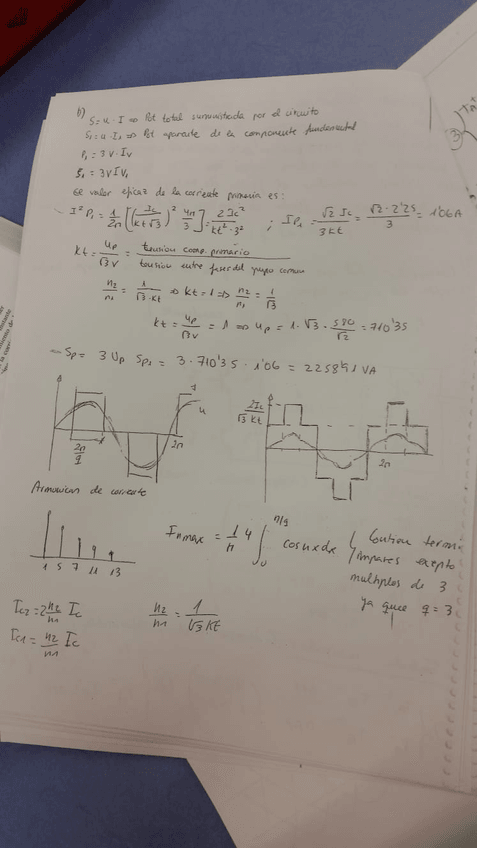 b)
S = u · I ⇒ Pot total suministrada por el circuito
S₁ = u · I₁ ⇒ Pot aparente de la componente fundamental
P₁ = 3 V · Iv
S₁ = 3 V Iv₁
se valor eficaz de la corriente primaria es:
I² P₁ = 1/2π [(Ic/(kt √3))² 4π/3] = 2 Ic²/(kt² · 3²) ; I P₁ = √2 Ic/(3 kt) = √2 · 2'25/3 = 1'06 A
kt = up/(√3 V) = tension comp. primario/tension entre fases del grupo conm
n₂/n₁ = 1/(√3 · kt) ⇒ kt = 1 ⇒ n₂/n₁ = 1/√3
kt = up/(√3 V) = 1 ⇒ up = 1 · √3 · 580/√2 = 710'35
Sp = 3 Up Sp₁ = 3 · 710'35 · 1'06 = 2258'91 VA
1
u
2π/q
2π
2Ic/(√3 kt)
2π
Armonicos de corriente
1 5 7 11 13
In max = 1/π 4 ∫₀^(π/q) cos nx dx
impares excepto
multiplos de 3
ya que q = 3
Ic2 = 2 n₂/n₁ Ic
n₂/n₁ = 1/(√3 kt)
Ic1 = n₂/n₁ Ic